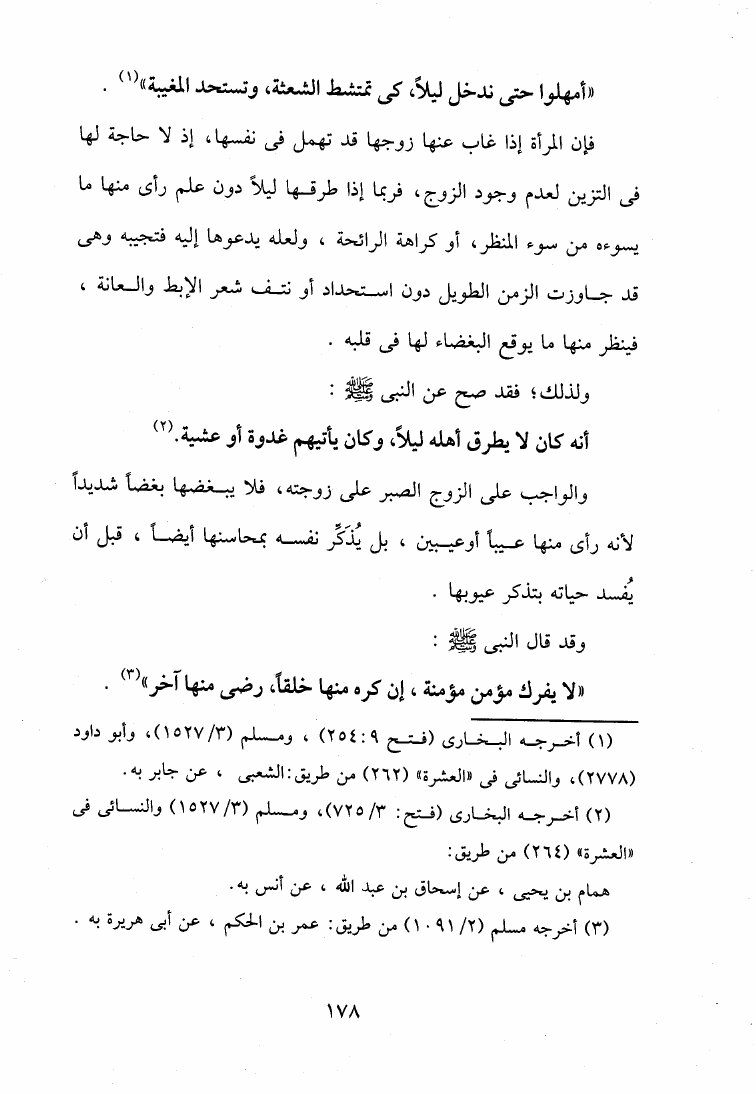 «أمهلوا حتى ندخل ليلاً، كى تمتشط الشعثة، وتستحد المغيبة»(١) .
فإن المرأة إذا غاب عنها زوجها قد تهمل فى نفسها، إذ لا حاجة لها
فى التزين لعدم وجود الزوج، فربما إذا طرقها ليلاً دون علم رأى منها ما
يسوءه من سوء المنظر، أو كراهة الرائحة ، ولعله يدعوها إليه فتجيبه وهى
قد جاوزت الزمن الطويل دون استحداد أو نتف شعر الإبط والعانة ،
فينظر منها ما يوقع البغضاء لها فى قلبه .
ولذلك؛ فقد صح عن النبى ﷺ :
أنه كان لا يطرق أهله ليلاً، وكان يأتيهم غدوة أو عشية.(٢)
والواجب على الزوج الصبر على زوجته، فلا يبغضها بغضاً شديداً
لأنه رأى منها عيباً أوعيبين ، بل يُذَكِّر نفسه بمحاسنها أيضاً ، قبل أن
يُفسد حياته بتذكر عيوبها .
وقد قال النبى ﷺ :
«لا يفرك مؤمن مؤمنة ، إن كره منها خلقاً، رضى منها آخر»(٣) .
(١) أخرجه البخارى (فتح ٩: ٢٥٤) ، ومسلم (٣/ ١٥٢٧)، وأبو داود
(٢٧٧٨)، والنسائى فى «العشرة» (٢٦٢) من طريق: الشعبى ، عن جابر به.
(٢) أخرجه البخارى (فتح: ٣/ ٧٢٥)، ومسلم (٣/ ١٥٢٧) والنسائى فى
«العشرة» (٢٦٤) من طريق:
همام بن يحيى ، عن إسحاق بن عبد الله ، عن أنس به.
(٣) أخرجه مسلم (٢/ ١٠٩١) من طريق: عمر بن الحكم ، عن أبى هريرة به .
١٧٨